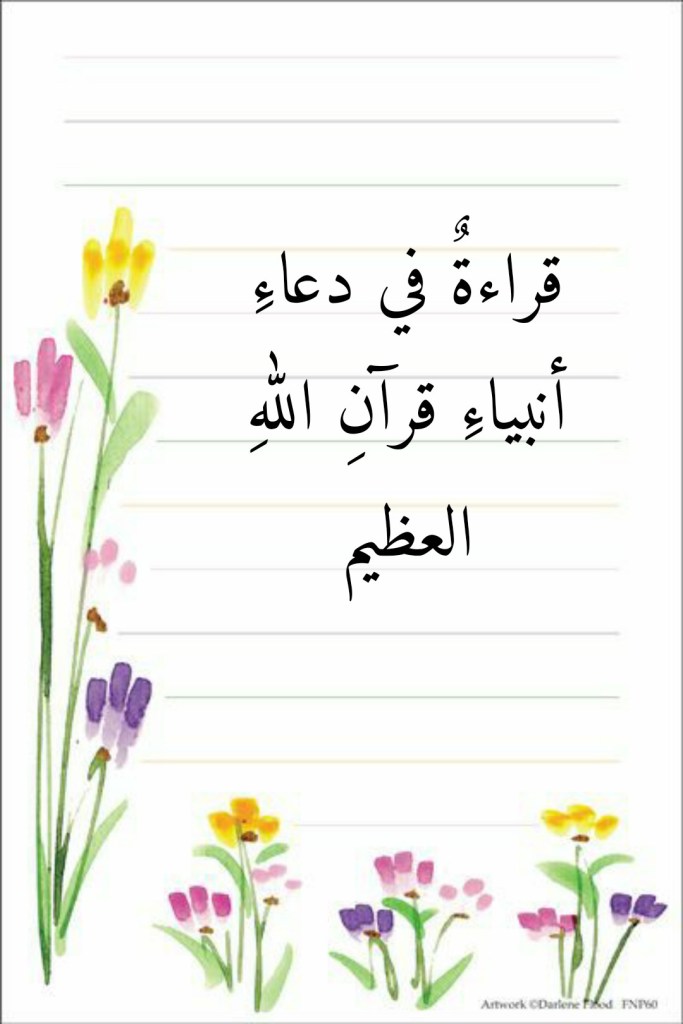 قراءةٌ في دعاءِ
أنبياءِ قرآنِ اللهِ
العظيم
Artwork ©Darlene Flood FNP60